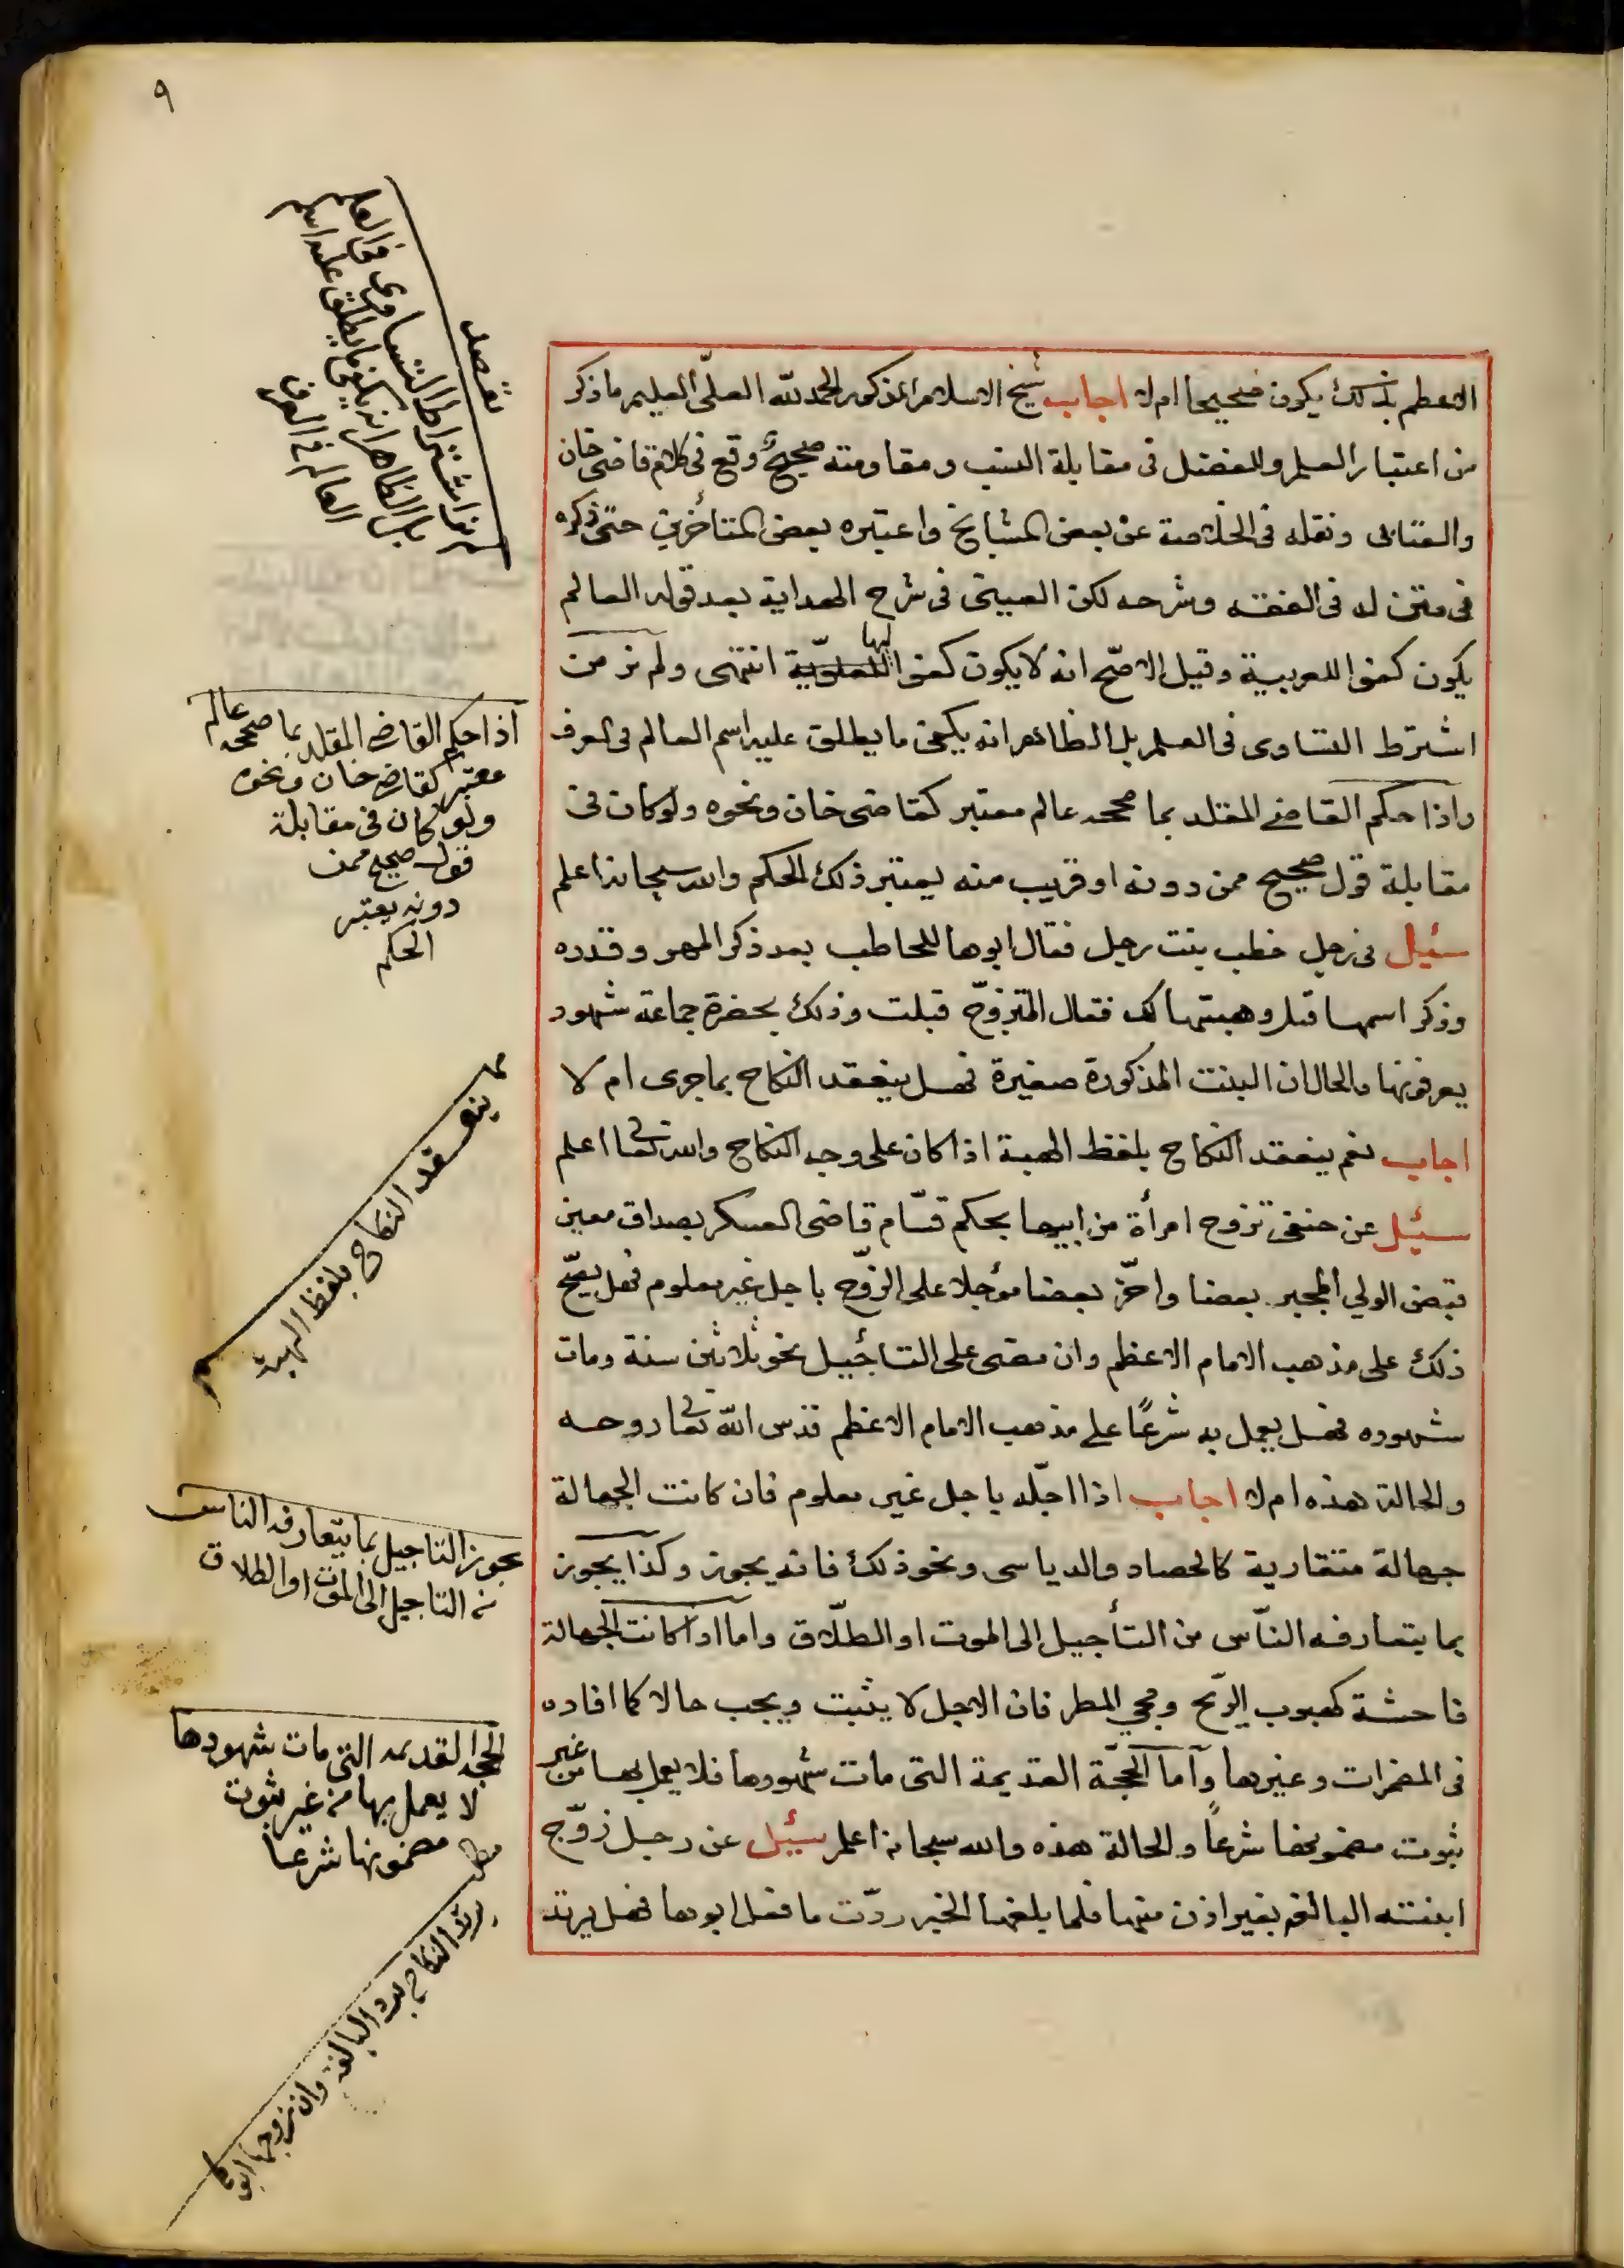 ٩
الاعظم بذلك يكون صحيحا ام لا اجاب شيخ الاسلام المذكور الحمد لله العليّ العليم ما ذكر
من اعتبار العلم والفضل في مقابلة النسب ومقاومته صحيح وقع في كلام قاضي خان
والعتابى ونقله في الخلاصة عن بعض المشايخ واعتبره بعض المتأخرين حتى ذكره
في متن له في الفقه وشرحه لكن العينى في شرح الهداية بعد قوله العالم
يكون كفئا للعربية وقيل الاصحّ انه لا يكون كفئا للعلويّة لها انتهى ولم نر من
اشترط التساوى في العلم بل الظاهر انه يكفى ما يطلق عليه اسم العالم في العرف
واذا حكم القاضي المقلد بما صححه عالم معتبر كقاضى خان ونحوه ولو كان في
مقابلة قول صحيح ممن دونه او قريب منه يعتبر ذلك الحكم والله سبحانه اعلم
سئيل في رجل خطب بنت رجل فقال ابوها للخاطب بعد ذكر المهر وقدره
وذكر اسمها قبل وهبتها لك فقال المتزوّج قبلت وذلك بحضرة جماعة شهود
يعرفونها والحال ان البنت المذكورة صغيرة فهل ينعقد النكاح بما جرى ام لا
اجاب نعم ينعقد النكاح بلفظ الهبة اذا كان على وجه النكاح والله تعا اعلم
سئيل عن حنفى تزوج امرأة من ابيها بحكم قسّام قاضى العسكر بصداق معين
قبض الولي المجبر بعضا واخّر بعضا مؤجلا على الزوّج باجل غير معلوم فهل يصّح
ذلك على مذهب الامام الاعظم وان مضى على التاجيل نحو ثلاثين سنة ومات
شهوده فهل يعمل به شرعًا على مذهب الامام الاعظم قدس الله تعا روحه
والحالة هذه ام لا اجاب اذا اجّله باجل غير معلوم فان كانت الجهالة
جهالة متقاربة كالحصاد والدياسى ونحو ذلك فانه يجوز وكذا يجوز
بما يتعارفه النّاس من التأجيل الى الموت او الطلّاق واما اذا كانت الجهالة
فاحشة كهبوب الرّيح ومجي المطر فان الاجل لا يثبت ويجب حالا كما افاده
في المضمرات وغيرها وأما الحجّة القديمة التى مات شهودها فلا يعمل بها من غير
ثبوت مضمونها شرعاً والحالة هذه والله سبحانه اعلم سئيل عن رجل زوّج
ابنته البالغه بغير اذن منها فلما بلغها الخبر ردّت ما فعل ابوها فهل يرتد
لم نر اشتراط التساوى في العلم
بل الظاهر انه يكفى ما يطلق عليه اسم
العالم في العرف
اذا حكم القاضى المقلد بما صححه عالم
معتبر كقاضى خان ونحوه
ولو كان في مقابلة
قول صحيح ممن
دونه يعتبر
الحكم
ينعقد النكاح بلفظ الهبة
يجوز التاجيل بما يتعارفه الناس
من التاجيل الى الموت او الطلاق
الحجة القديمة التى مات شهودها
لا يعمل بها من غير ثبوت
مضمونها شرعا
مطلب
يرتد النكاح برد البالغة وان زوجها ابوها